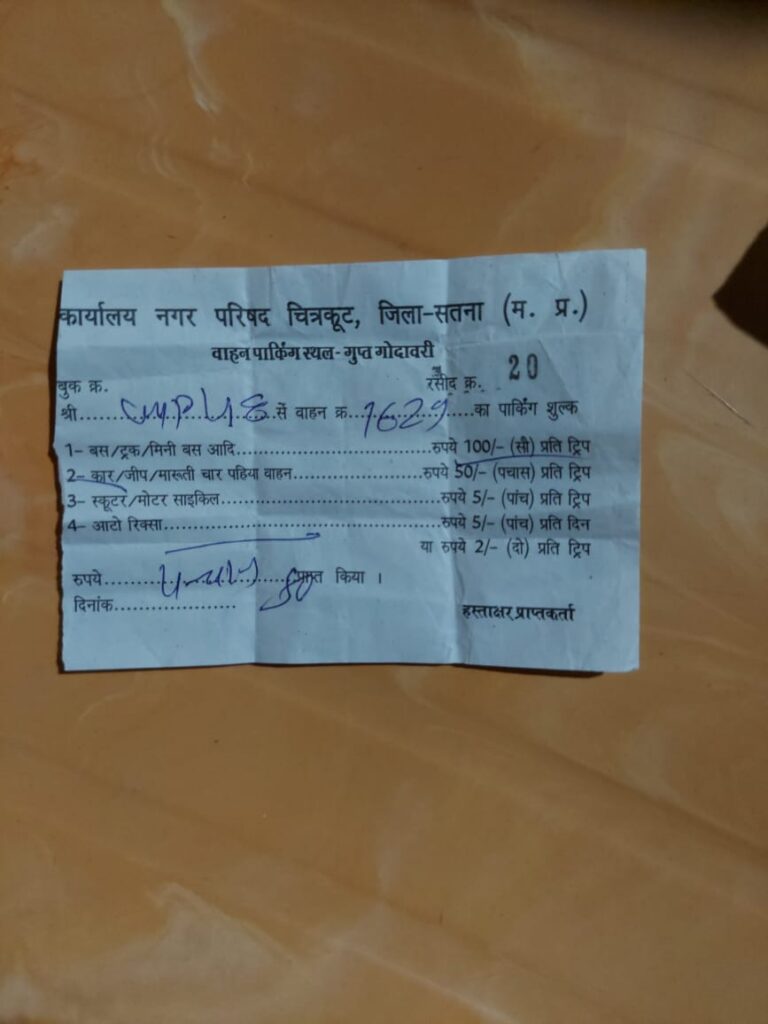 कार्यालय नगर परिषद चित्रकूट, जिला-सतना (म. प्र.)
वाहन पार्किंग स्थल-गुप्त गोदावरी
बुक क्र. रसीद क्र. 20
श्री..................सें वाहन क्र. 1629 ....का पार्किंग शुल्क
1- बस/ट्रक/मिनी बस आदि..............................रुपये 100/- (सौ) प्रति ट्रिप
2- कार/जीप/मारूती चार पहिया वाहन....................रुपये 50/- (पचास) प्रति ट्रिप
3- स्कूटर/मोटर साइकिल.................................रुपये 5/- (पांच) प्रति ट्रिप
4- आटो रिक्सा...........................................रुपये 5/- (पांच) प्रति दिन
या रुपये 2/- (दो) प्रति ट्रिप
रुपये..... पचास .....प्राप्त किया ।
दिनांक.................. 50
हस्ताक्षर प्राप्तकर्ता